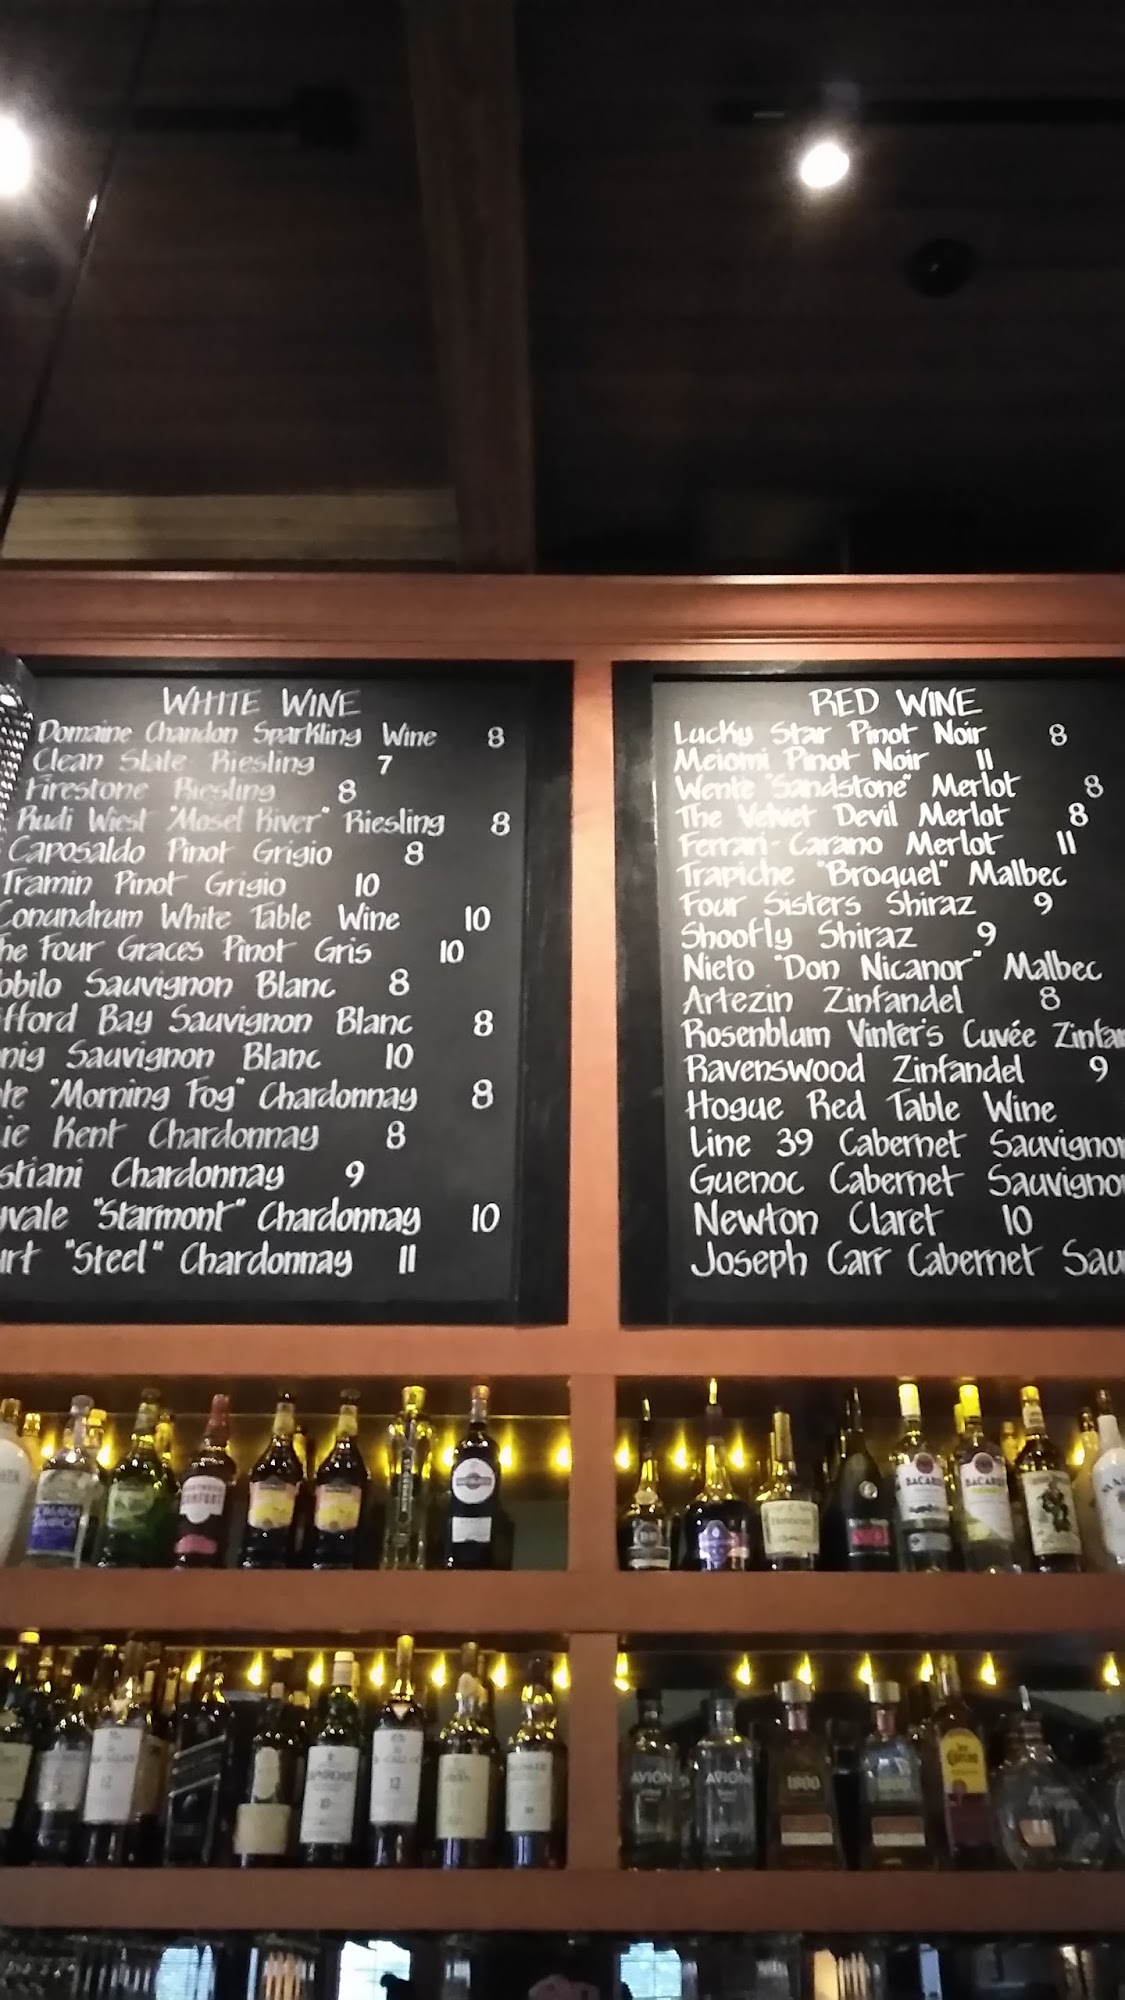 WHITE WINE
Domaine Chandon Sparkling Wine 8
Clean Slate Riesling 7
Firestone Riesling 8
Rudi Wiest "Mosel River" Riesling 8
Caposaldo Pinot Grigio 8
Tramin Pinot Grigio 10
Conundrum White Table Wine 10
he Four Graces Pinot Gris 10
obilo Sauvignon Blanc 8
ifford Bay Sauvignon Blanc 8
nig Sauvignon Blanc 10
te "Morning Fog" Chardonnay 8
ie Kent Chardonnay 8
stiani Chardonnay 9
yvale "Starmont" Chardonnay 10
urt "Steel" Chardonnay 11
RED WINE
Lucky Star Pinot Noir 8
Meiomi Pinot Noir 11
Wente "Sandstone" Merlot 8
The Velvet Devil Merlot 8
Ferrari-Carano Merlot 11
Trapiche "Broquel" Malbec
Four Sisters Shiraz 9
Shoofly Shiraz 9
Nieto "Don Nicanor" Malbec
Artezin Zinfandel 8
Rosenblum Vinter's Cuvée Zinfan
Ravenswood Zinfandel 9
Hogue Red Table Wine
Line 39 Cabernet Sauvignon
Guenoc Cabernet Sauvigno
Newton Claret 10
Joseph Carr Cabernet Sau
BACARDI
BACARDI
AVIÓN
AVIÓN
1800
1800